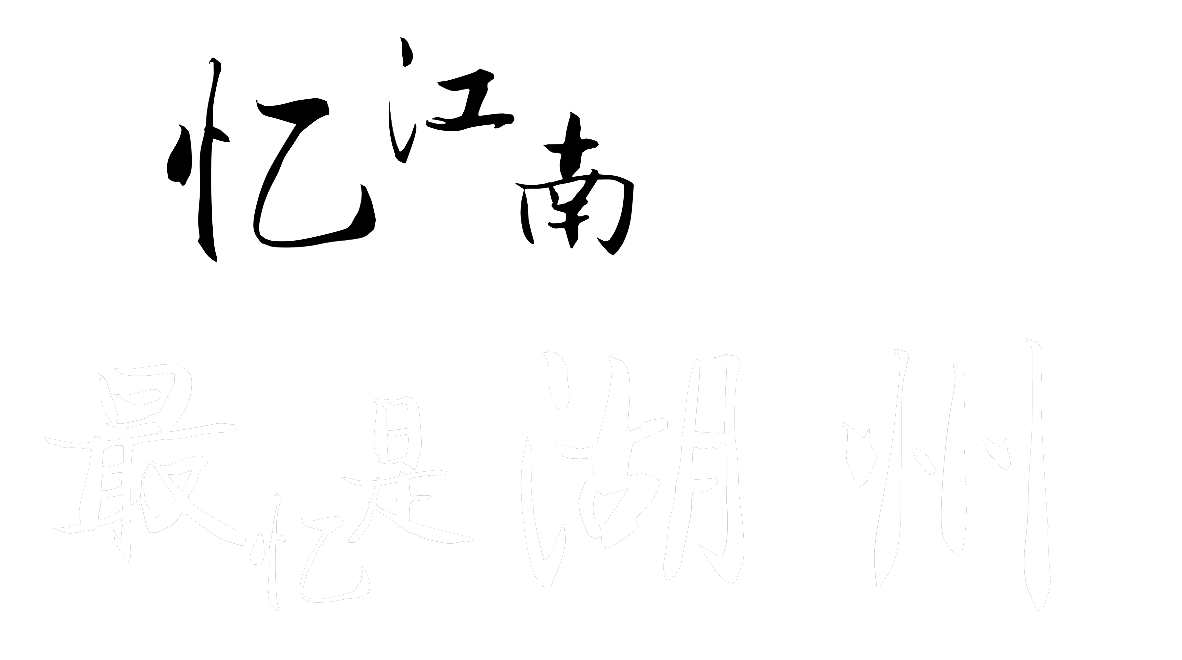 忆江南
最忆是湖州